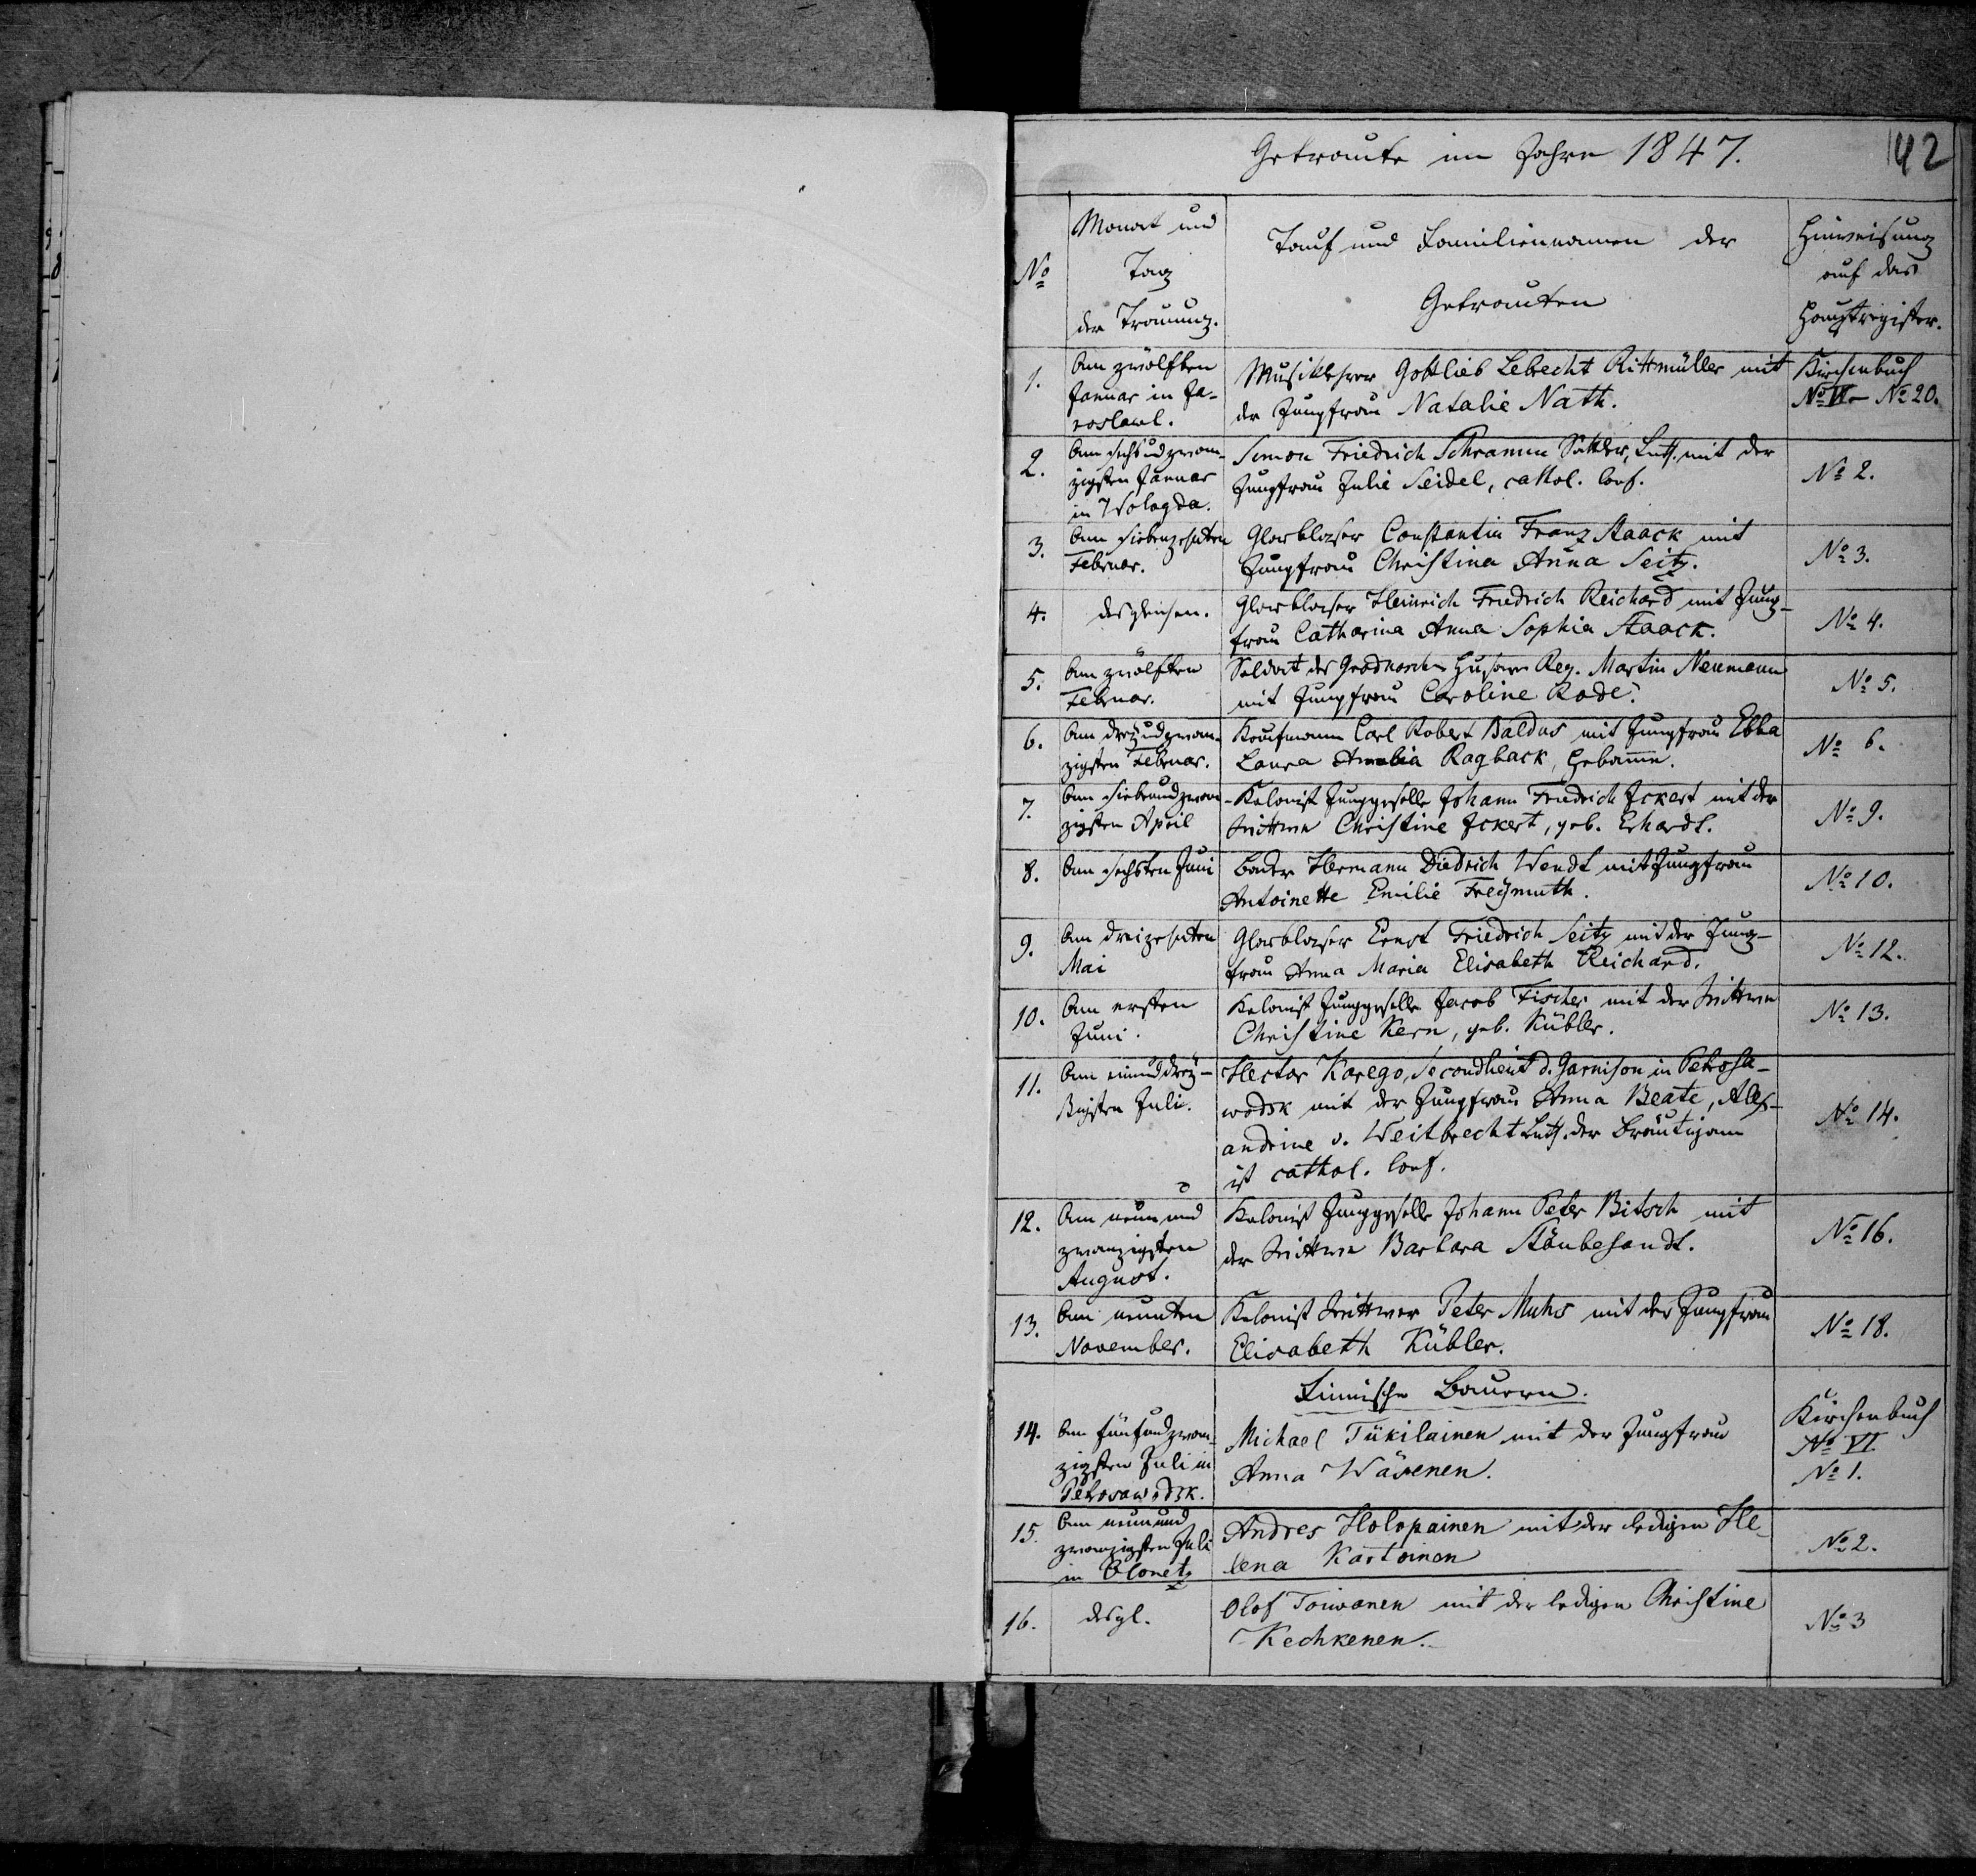 Getraute im Jahre 1847.
142
No
Monat und
Tag
der Trauung.
Tauf und Familiennamen der
Getrauten
Hinweisung
auf das
Hauptregister.
1.
Am zwölften
Januar in Ja-
roslawl.
Musiklehrer Gottlieb Lebrecht Rittmüller mit
der Jungfrau Natalie Nath.
Kirchenbuch
No VI – No 20.
2.
Am sechsudzwan-
zigsten Januar
in Wologda.
Simon Friedrich Schramm Sattler, Luth. mit der
Jungfrau Julie Seidel, cathol. Conf.
No 2.
3.
Am siebenzehnten
Februar.
Glasblaser Constantin Franz Staack mit
Jungfrau Christina Anna Seitz.
No 3.
4.
desgleichen.
Glasblaser Heinrich Friedrich Reichard mit Jung-
frau Catharina Anna Sophia Staack.
No 4.
5.
Am zwölften
Februar.
Soldat des Grodnoschen Husaren Reg. Martin Neumann
mit Jungfrau Caroline Rode.
No 5.
6.
Am dreyudzwan-
zigsten Februar.
Kaufmann Carl Robert Baldus mit Jungfrau Ebba
Laura Amalia Ragback, Hebamme.
No 6.
7.
Am siebenudzwan-
zigsten April
Kolonist Junggeselle Johann Friedrich Ickert mit der
Wittwe Christine Ickert, geb. Erhardt.
No 9.
8.
Am sechsten Juni
Bauer Hermann Diedrich Wendt mit Jungfrau
Antoinette Emilie Freymuth.
No 10.
9.
Am dreizehnten
Mai
Glasblaser Ernst Friedrich Seitz mit der Jung-
frau Anna Maria Elisabeth Reichard.
No 12.
10.
Am ersten
Juni.
Kolonist Junggeselle Jacob Fischer mit der Wittwe
Christine Kern, geb. Kübler.
No 13.
11.
Am einuddrey-
ßigsten Juli.
Hector Karego, Secondlieut d. Garnison in Petrosa-
wodsk mit der Jungfrau Anna Beate, Alex-
andrine v. Weitbrecht Luth. der Bräutigam
ist cathol. Conf.
No 14.
12.
Am neun und
zwanzigsten
August.
Kolonist Junggeselle Johann Peter Bitsch mit
der Wittwe Barbara Stäubesandt.
No 16.
13.
Am neunten
November.
Kolonist Wittwer Peter Muhs mit der Jungfrau
Elisabeth Kübler.
No 18.
Finnische Bauern.
14.
Am fünfudzwan-
zigsten Juli in
Petrosawodsk.
Michael Tükilainen mit der Jungfrau
Anna Wäsenen.
Kirchenbuch
No VI
No 1.
15.
Am neunund
zwanzigsten Juli
in Olonetz
Andres Holopainen mit der ledigen He
lena Kastoinen
No 2.
16.
desgl.
Olof Toiwanen mit der ledigen Christine
Kechkenen.
No 3